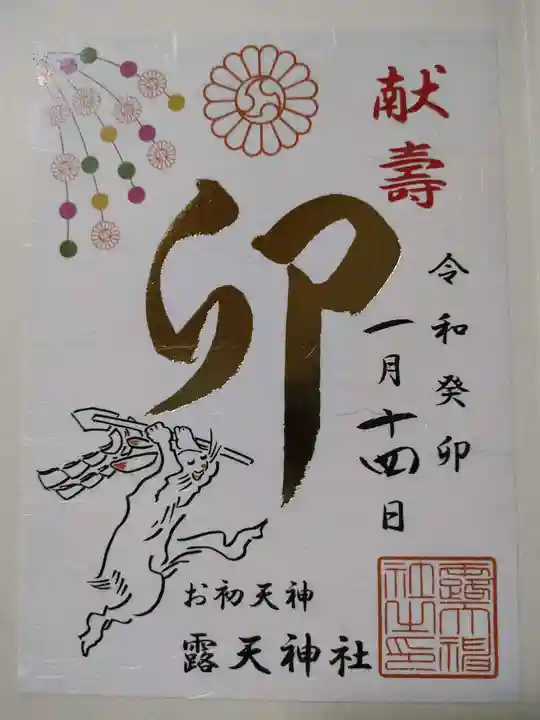 献壽
令和癸卯
一月十四日
卯
お初天神
露天神社